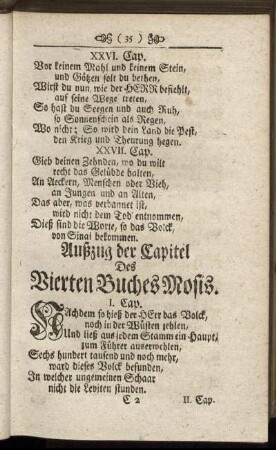 ( 35 )
XXVI. Cap.
Vor keinem Mahl und keinem Stein,
und Götzen solt du bethen,
Wirst du nun, wie der HERR befiehlt,
auf seine Wege treten,
So hast du Seegen und auch Ruh,
so Sonnenschein als Regen,
Wo nicht; So wird dein Land die Pest,
den Krieg und Theurung hegen.
XXVII. Cap.
Gieb deinen Zehnden, wo du wilt
recht das Gelübde halten,
An Aeckern, Menschen oder Vieh,
an Jungen und an Alten,
Das aber, was verbannet ist,
wird nicht dem Tod entnommen,
Dieß sind die Worte, so das Volck,
von Sinai bekommen.
Außzug der Capitel
Des
Vierten Buches Mosis.
I. Cap.
NAchdem so hieß der HErr das Volck,
noch in der Wüsten zehlen,
Und ließ aus jedem Stamm ein Haupt,
zum Führer auserwehlen,
Sechs hundert tausend und noch mehr,
ward dieses Volck befunden,
In welcher ungemeinen Schaar
nicht die Leviten stunden.
C 2 II. Cap.